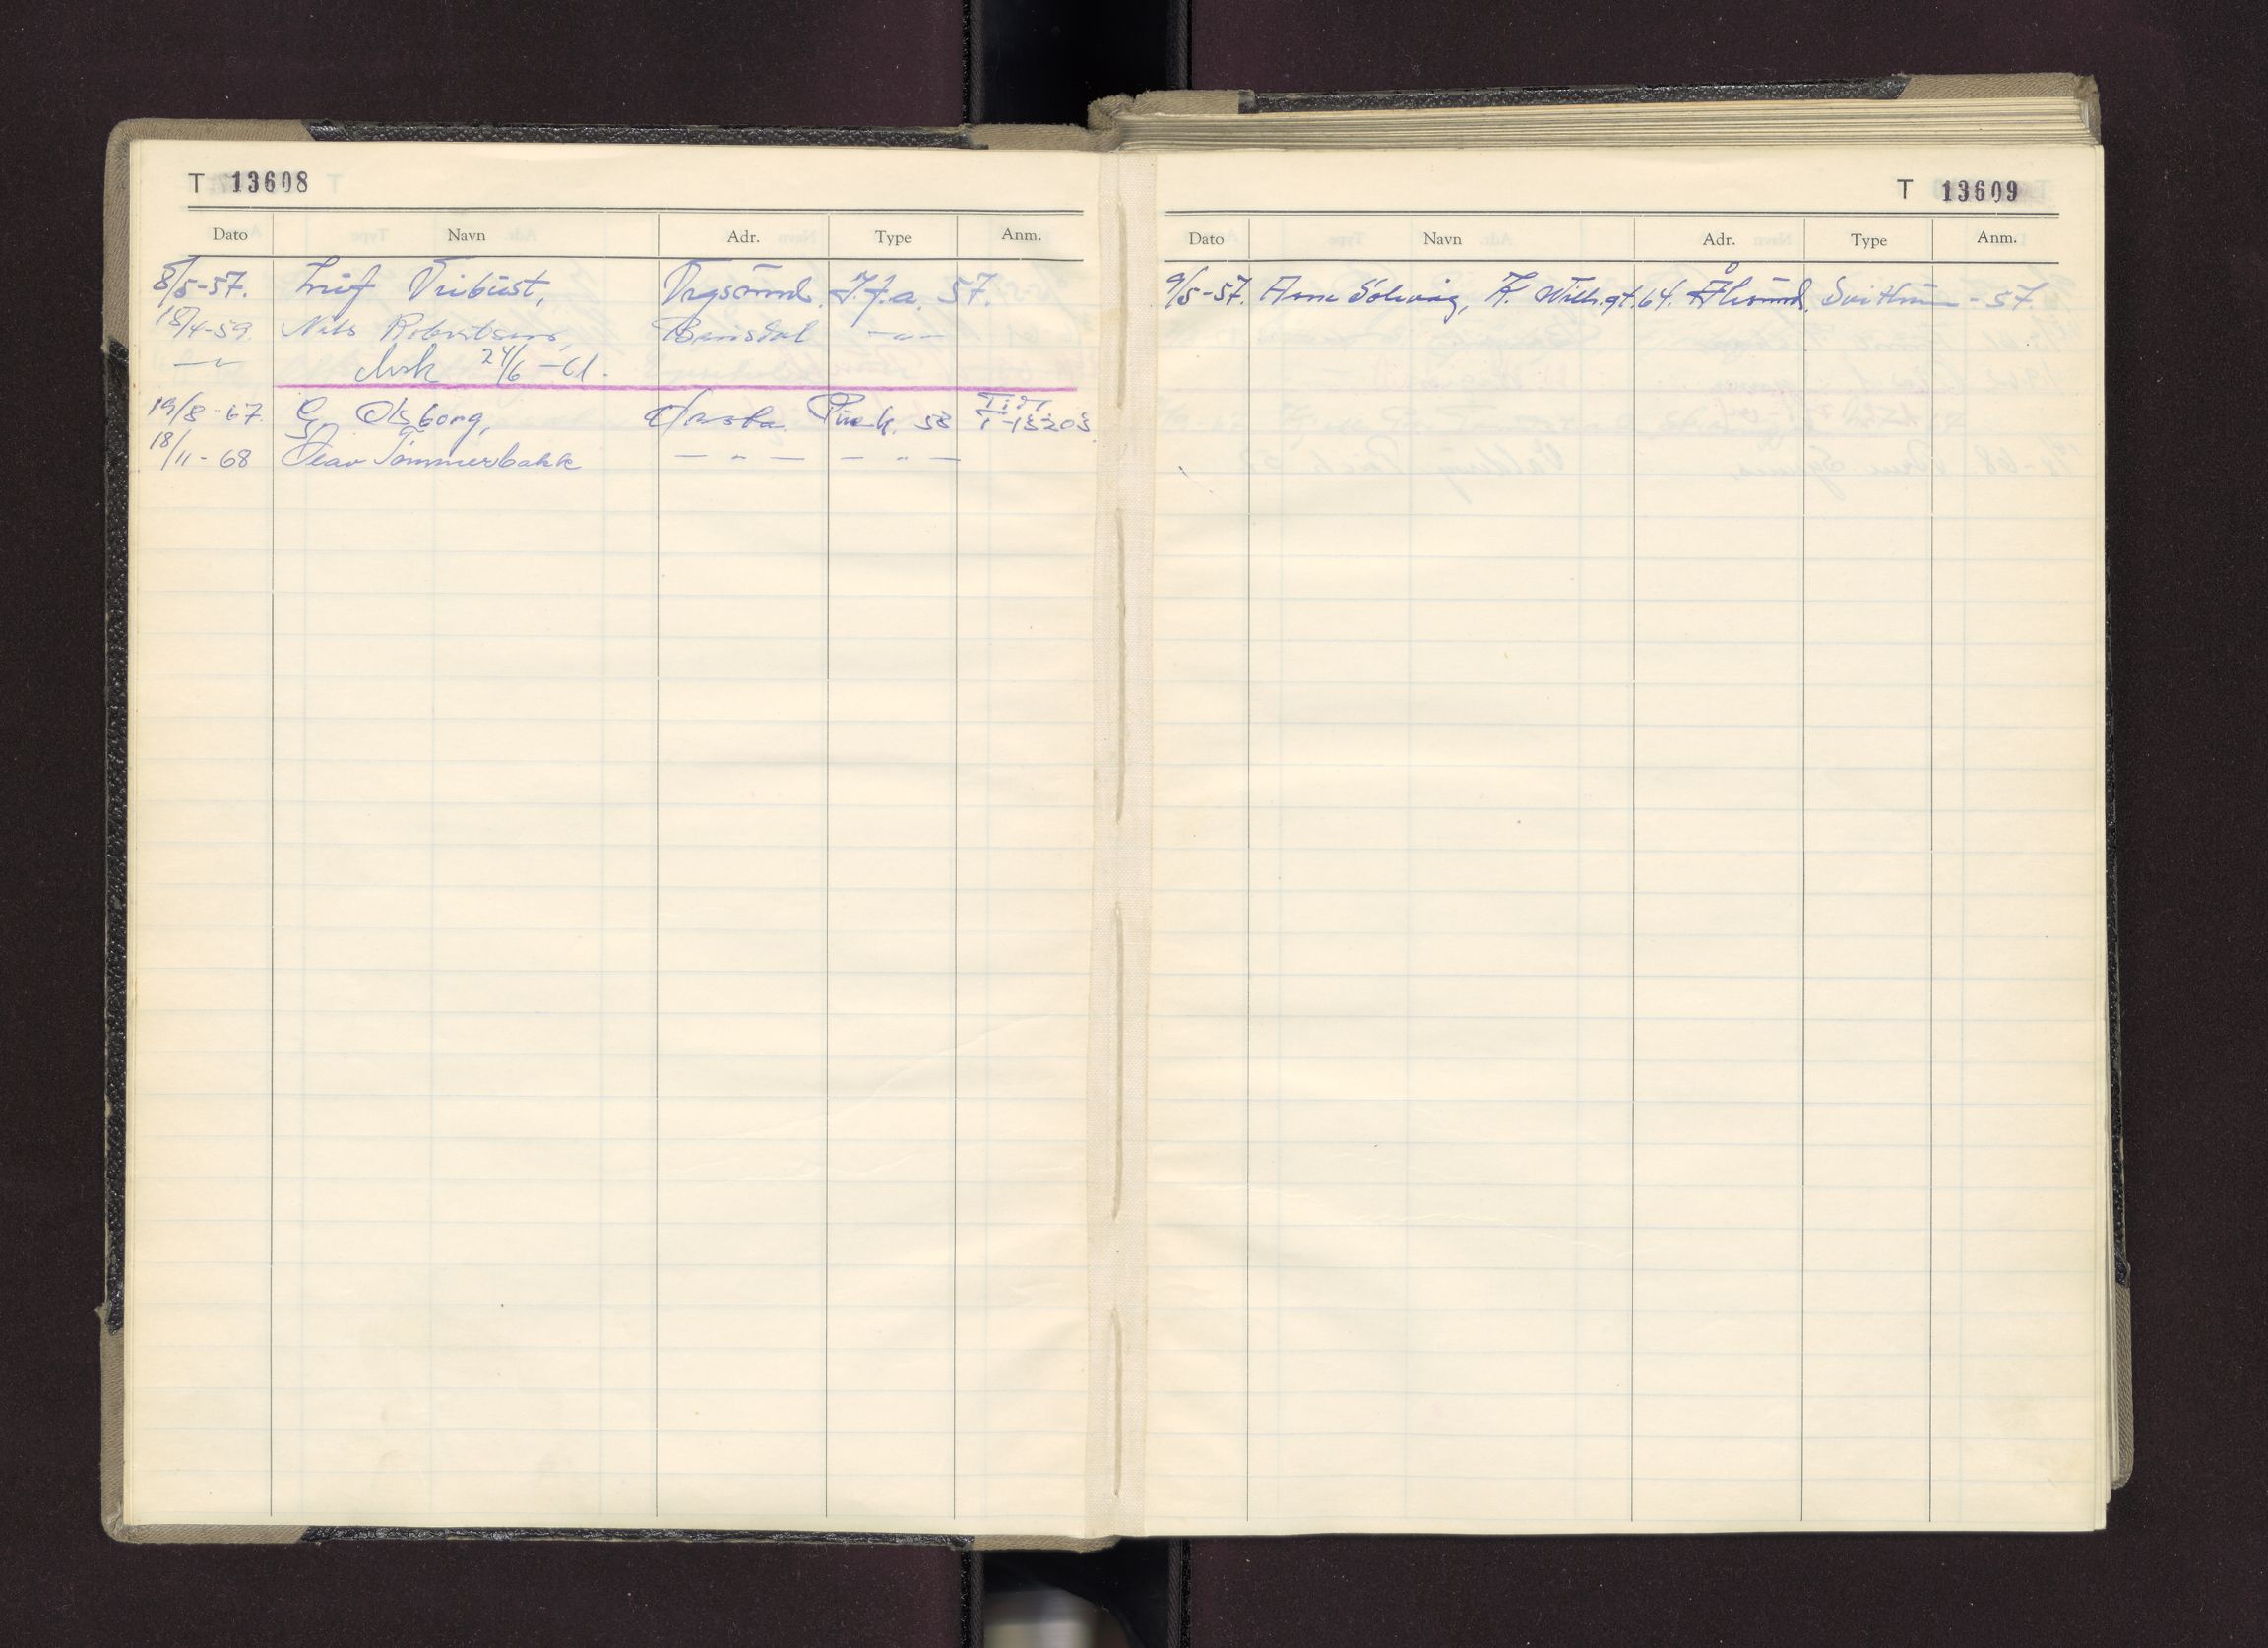 T 13608
Dato Navn Adr. Type Anm.
8/5-57. Leif Tribust, Trysund. J.f.a. 57.
18/4-59. Nils Robertsen, Brusdal —"—
—"— Avsk 24/6-61.
19/8-67. G. Osborg, Ørsta Puch. 58 Tidl T-13203
18/11-68 Olav Tømmerbakk — " — — " —
T 13609
Dato Navn Adr. Type Anm.
9/5-57. Arne Solevåg, K. Wilh.gt. 64. Ålesund. Svithun - 57.